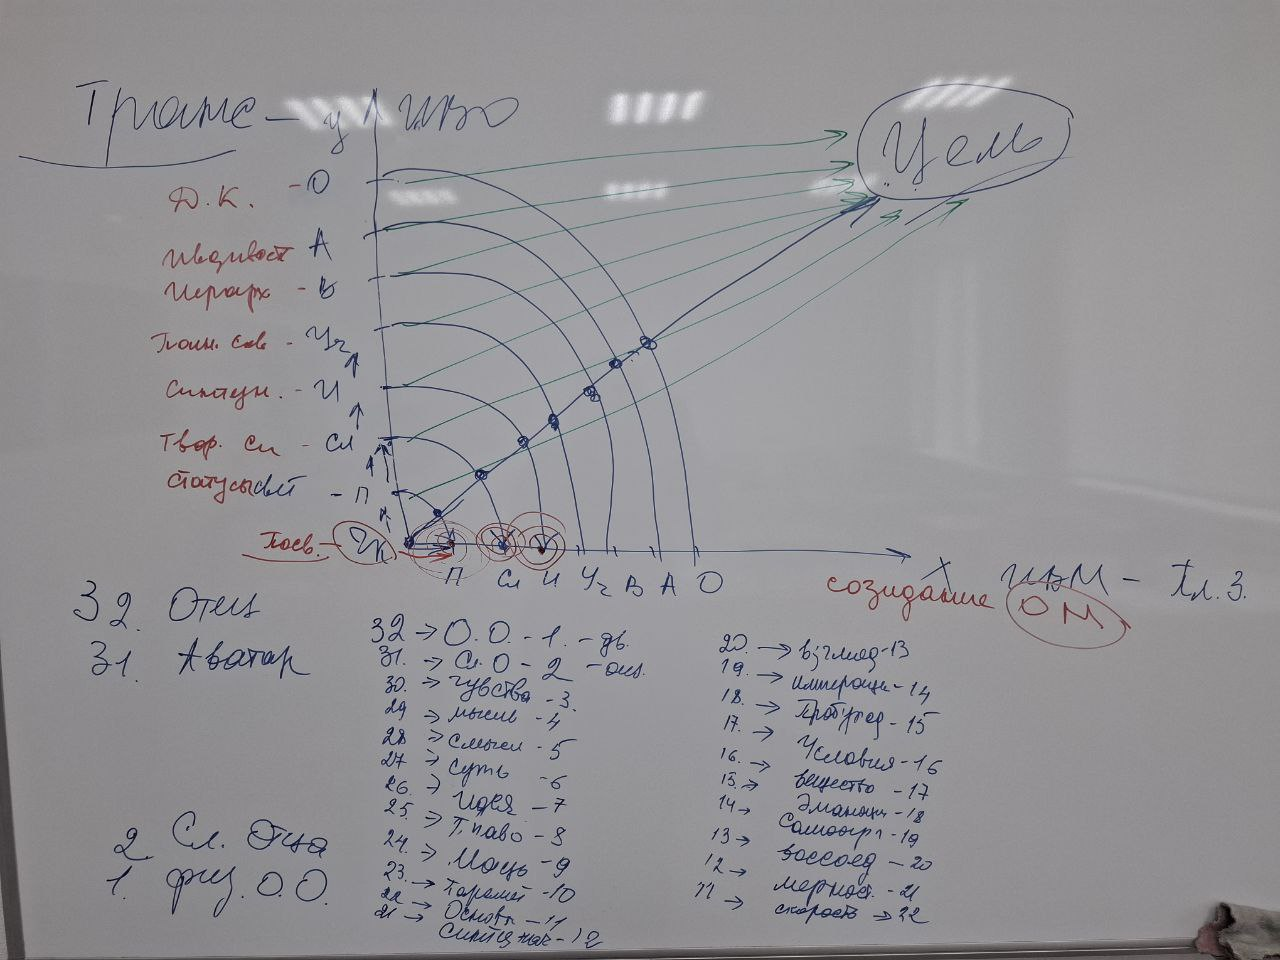 Транс – у ИВО
Цель
Д. К. – О
А
Иерарх – В
– Уч
Синтезн. – И
Твор. Сл – Сл
– П
Посв. – Чк
П Сл И Уч В А О
X ИВМ – Гл. 3.
созидание ОМ
32. Отец
31. Аватар
2 Сл. Отца
1. физ. О.О.
32 → О. О. – 1. – дв.
31. → Сл. О – 2
30. → Чувства – 3.
29 → мысль – 4
28 → смысл – 5
27 → суть – 6
26. → Идея – 7
25. → Право – 8
24. → Мощь – 9
23. → Парамет – 10
22 → Основы – 11
21 → Синтезнач – 12
20. → взгляд – 13
19. → императив – 14
18. → Пробужд – 15
17. → Условия – 16
16. → вещество – 17
15. → Эманации – 18
14 → Самоорг – 19
13 → воссоед – 20
12 → мерност. – 21
11 → скорость → 22